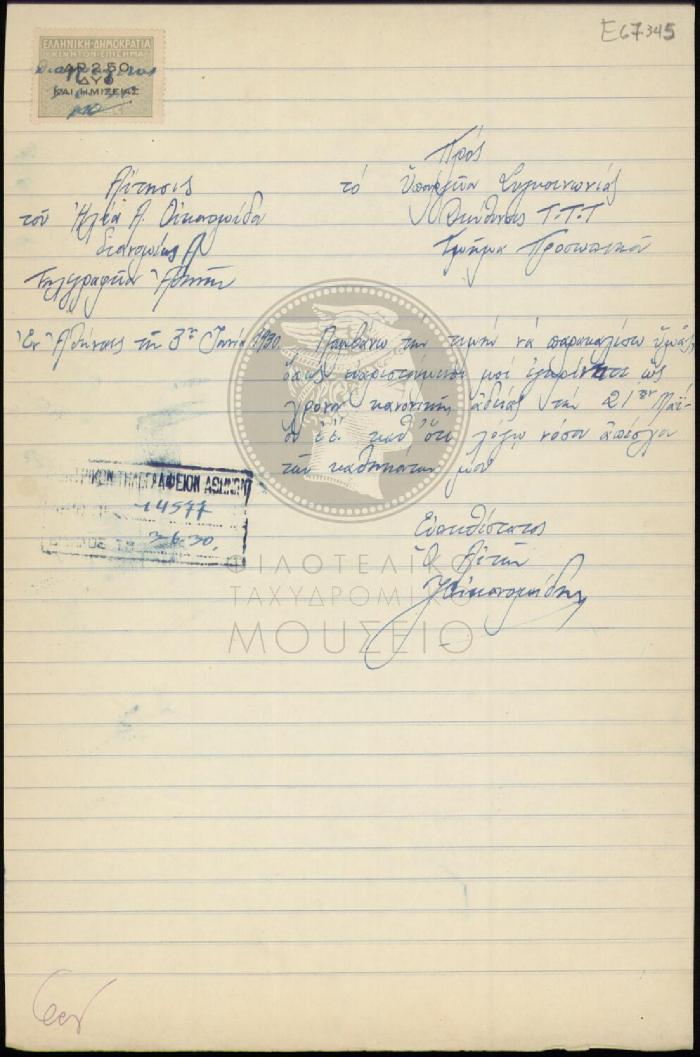 E67345
ΕΛΛΗΝΙΚΗ ΔΗΜΟΚΡΑΤΙΑ
ΚΙΝΗΤΟΝ ΕΠΙΣΗΜΑ
ΔΡ 2.50
ΔΥΟ
ΚΑΙ ΗΜΙΣΕΙΑΣ
Αἴτησις
τοῦ Ἠλία Α. Οἰκονομίδη
διανομέως
Τηλεγραφείου Ἀθηνῶν
Πρὸς
τό Ὑπουργεῖον Συγκοινωνίας
Διεύθυνσις Τ.Τ.Τ
Τμῆμα Προσωπικοῦ
Ἐν Ἀθήναις τῇ 3ῃ Ἰουνίου 1930.
Λαμβάνω τήν τιμήν νά παρακαλέσω ὑμᾶς
ὅπως εὐαρεστούμενοι μοί ἐγκρίνητε ὡς
χρόνον κανονικῆς ἀδείας τήν 21ην Μαΐ-
ου ἐ.ἔ. καθ' ὅτι λόγῳ νόσου ἀπέσχον
τῶν καθηκόντων μου
Εὐπειθέστατος
Ὁ Αἰτῶν
Οἰκονομίδης
ΤΗΛΕΓΡΑΦΕΙΟΝ ΑΘΗΝΩΝ
14577
3-6-30
ΦΙΛΟΤΕΛΙΚΟ
ΤΑΧΥΔΡΟΜΙΚΟ
ΜΟΥΣΕΙΟ